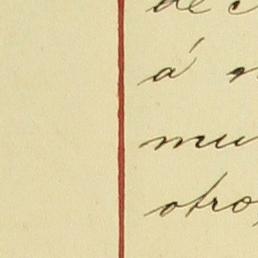 de
á
mu
otro